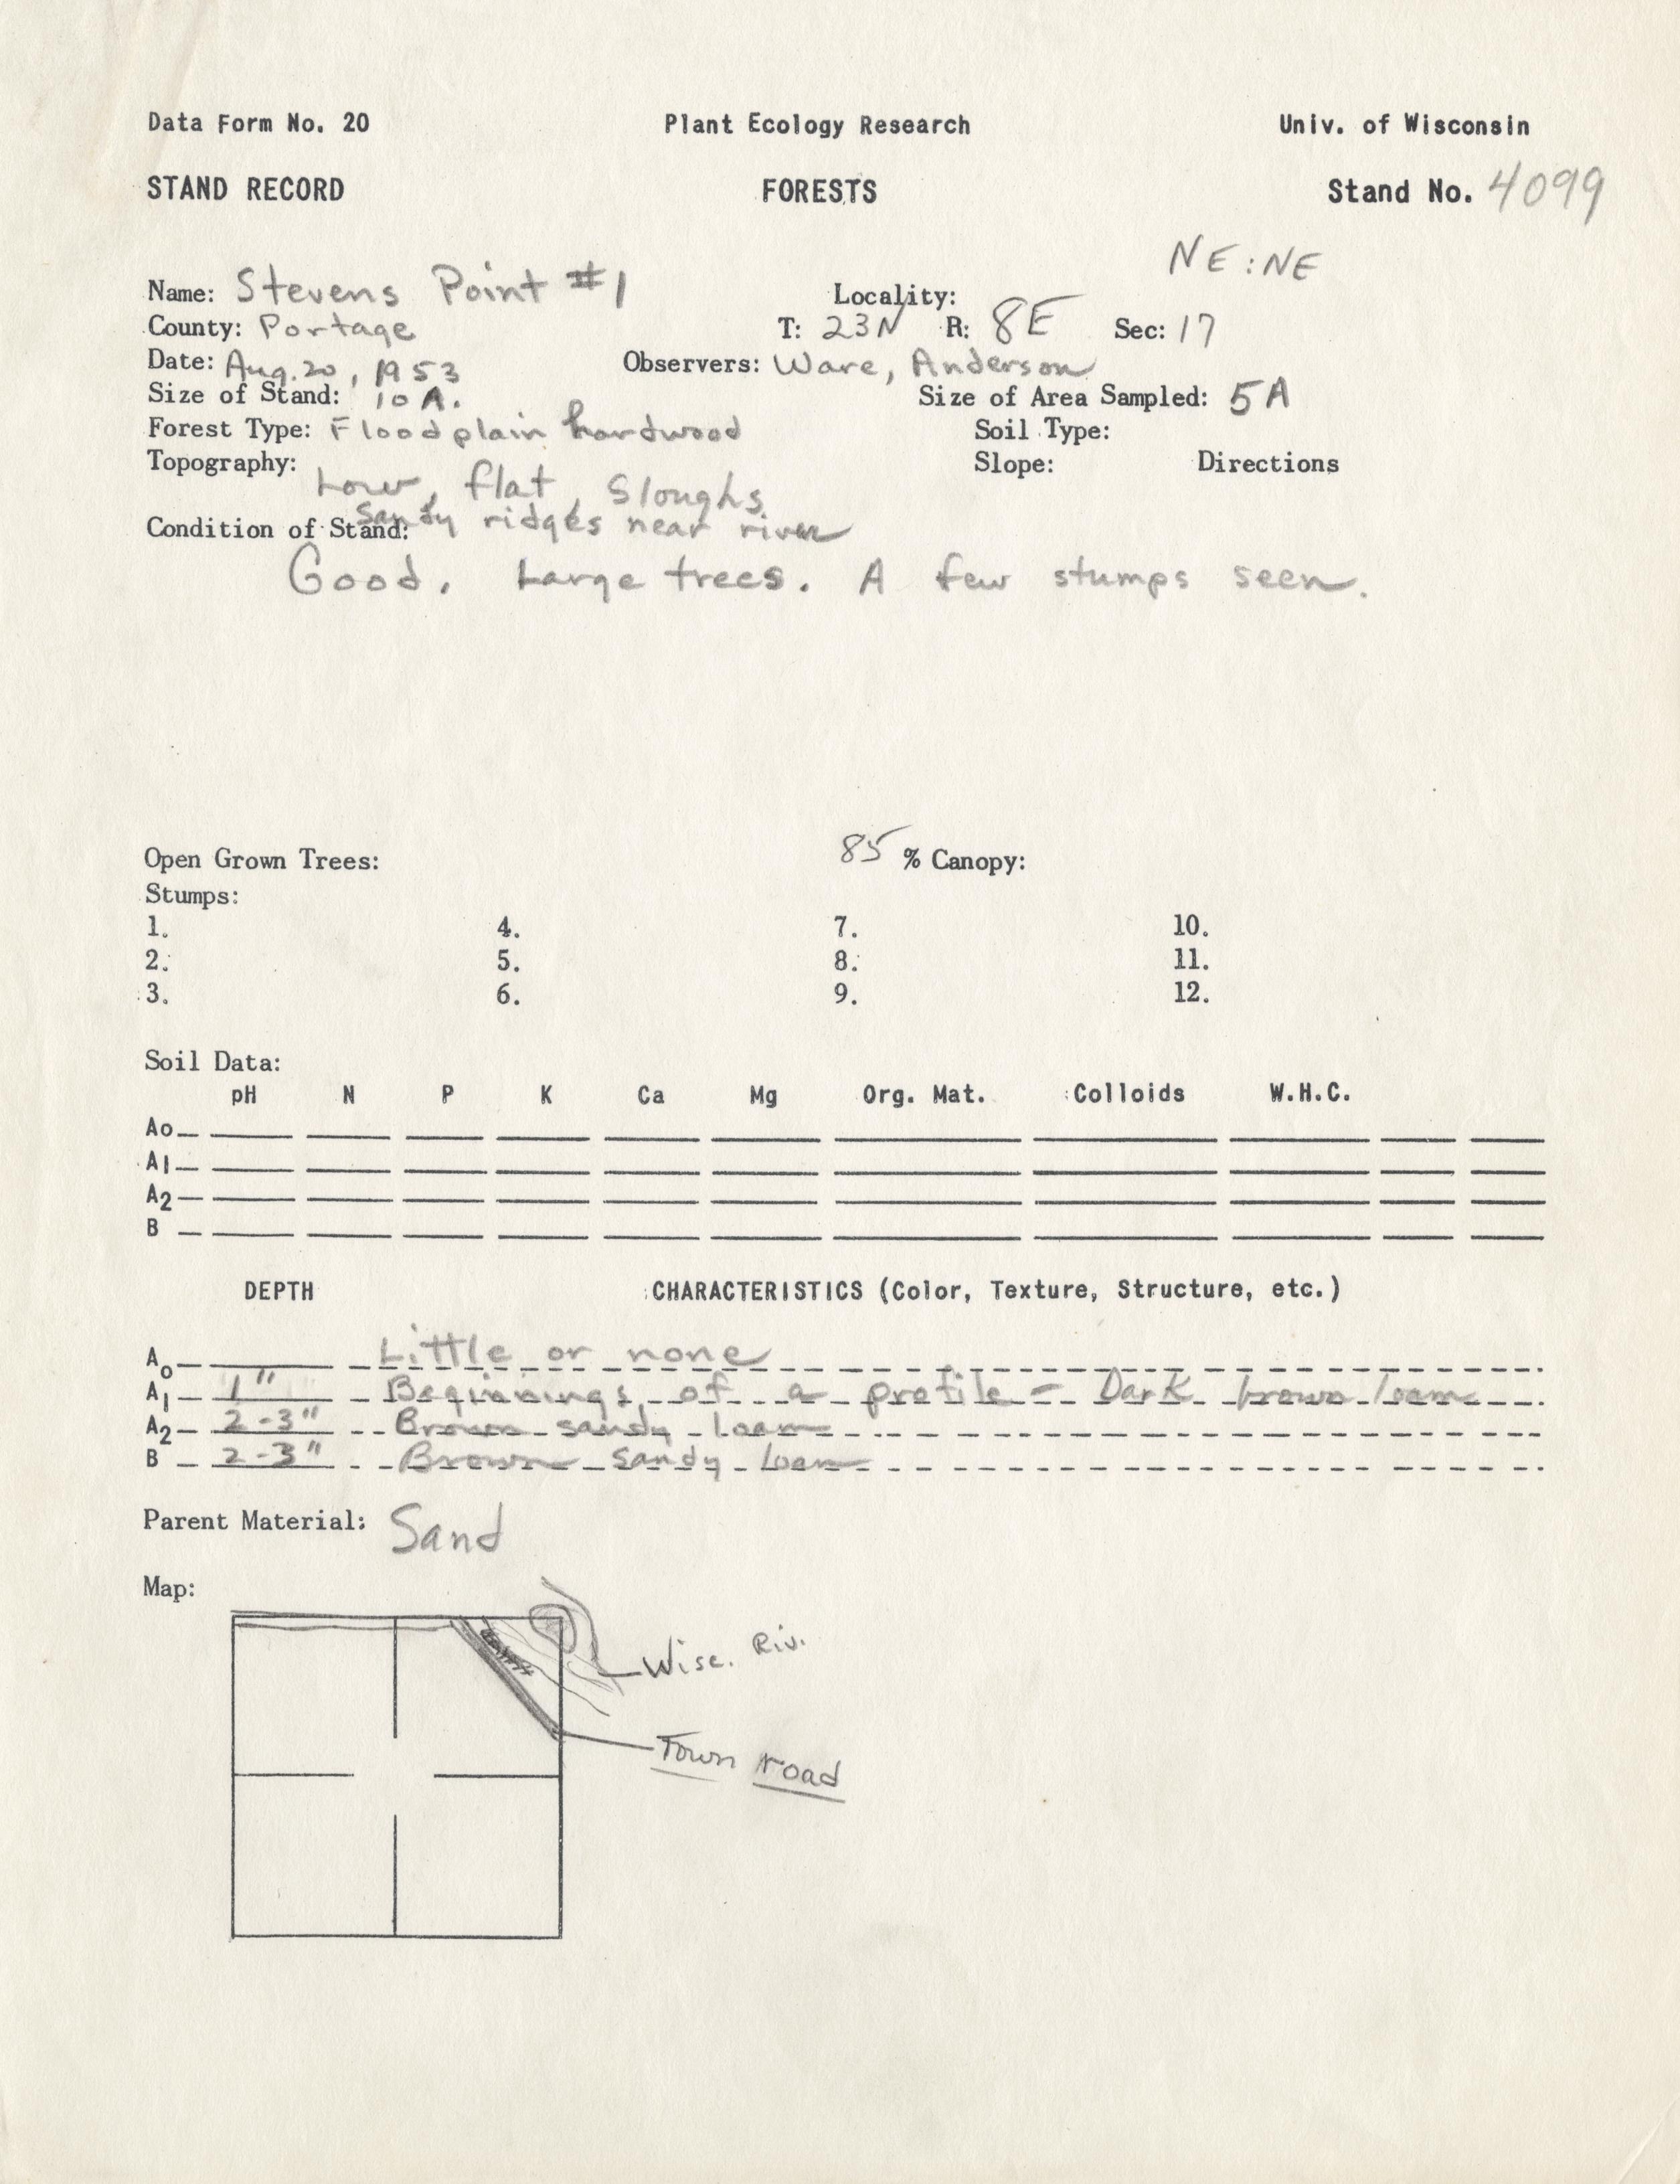 Data Form No. 20 Plant Ecology Research Univ. of Wisconsin
STAND RECORD FORESTS Stand No. 4099
NE:NE
Name: Stevens Point #1 Locality:
County: Portage T: 23N R: 8E Sec: 17
Date: Aug. 20, 1953 Observers: Ware, Anderson
Size of Stand: 10 A. Size of Area Sampled: 5A
Forest Type: Floodplain hardwood Soil Type:
Topography: Slope: Directions
Low, flat, sloughs
Sandy ridges near river
Condition of Stand:
Good. Large trees. A few stumps seen.
Open Grown Trees: 85 % Canopy:
Stumps:
1. 4. 7. 10.
2. 5. 8. 11.
3. 6. 9. 12.
Soil Data:
pH N P K Ca Mg Org. Mat. Colloids W.H.C.
Ao
A1
A2
B
DEPTH CHARACTERISTICS (Color, Texture, Structure, etc.)
Ao Little or none
A1 1" Beginnings of a profile - Dark brown loam
A2 2-3" Brown sandy loam
B 2-3" Brown sandy loam
Parent Material: Sand
Map:
Wisc. Riv.
Town road